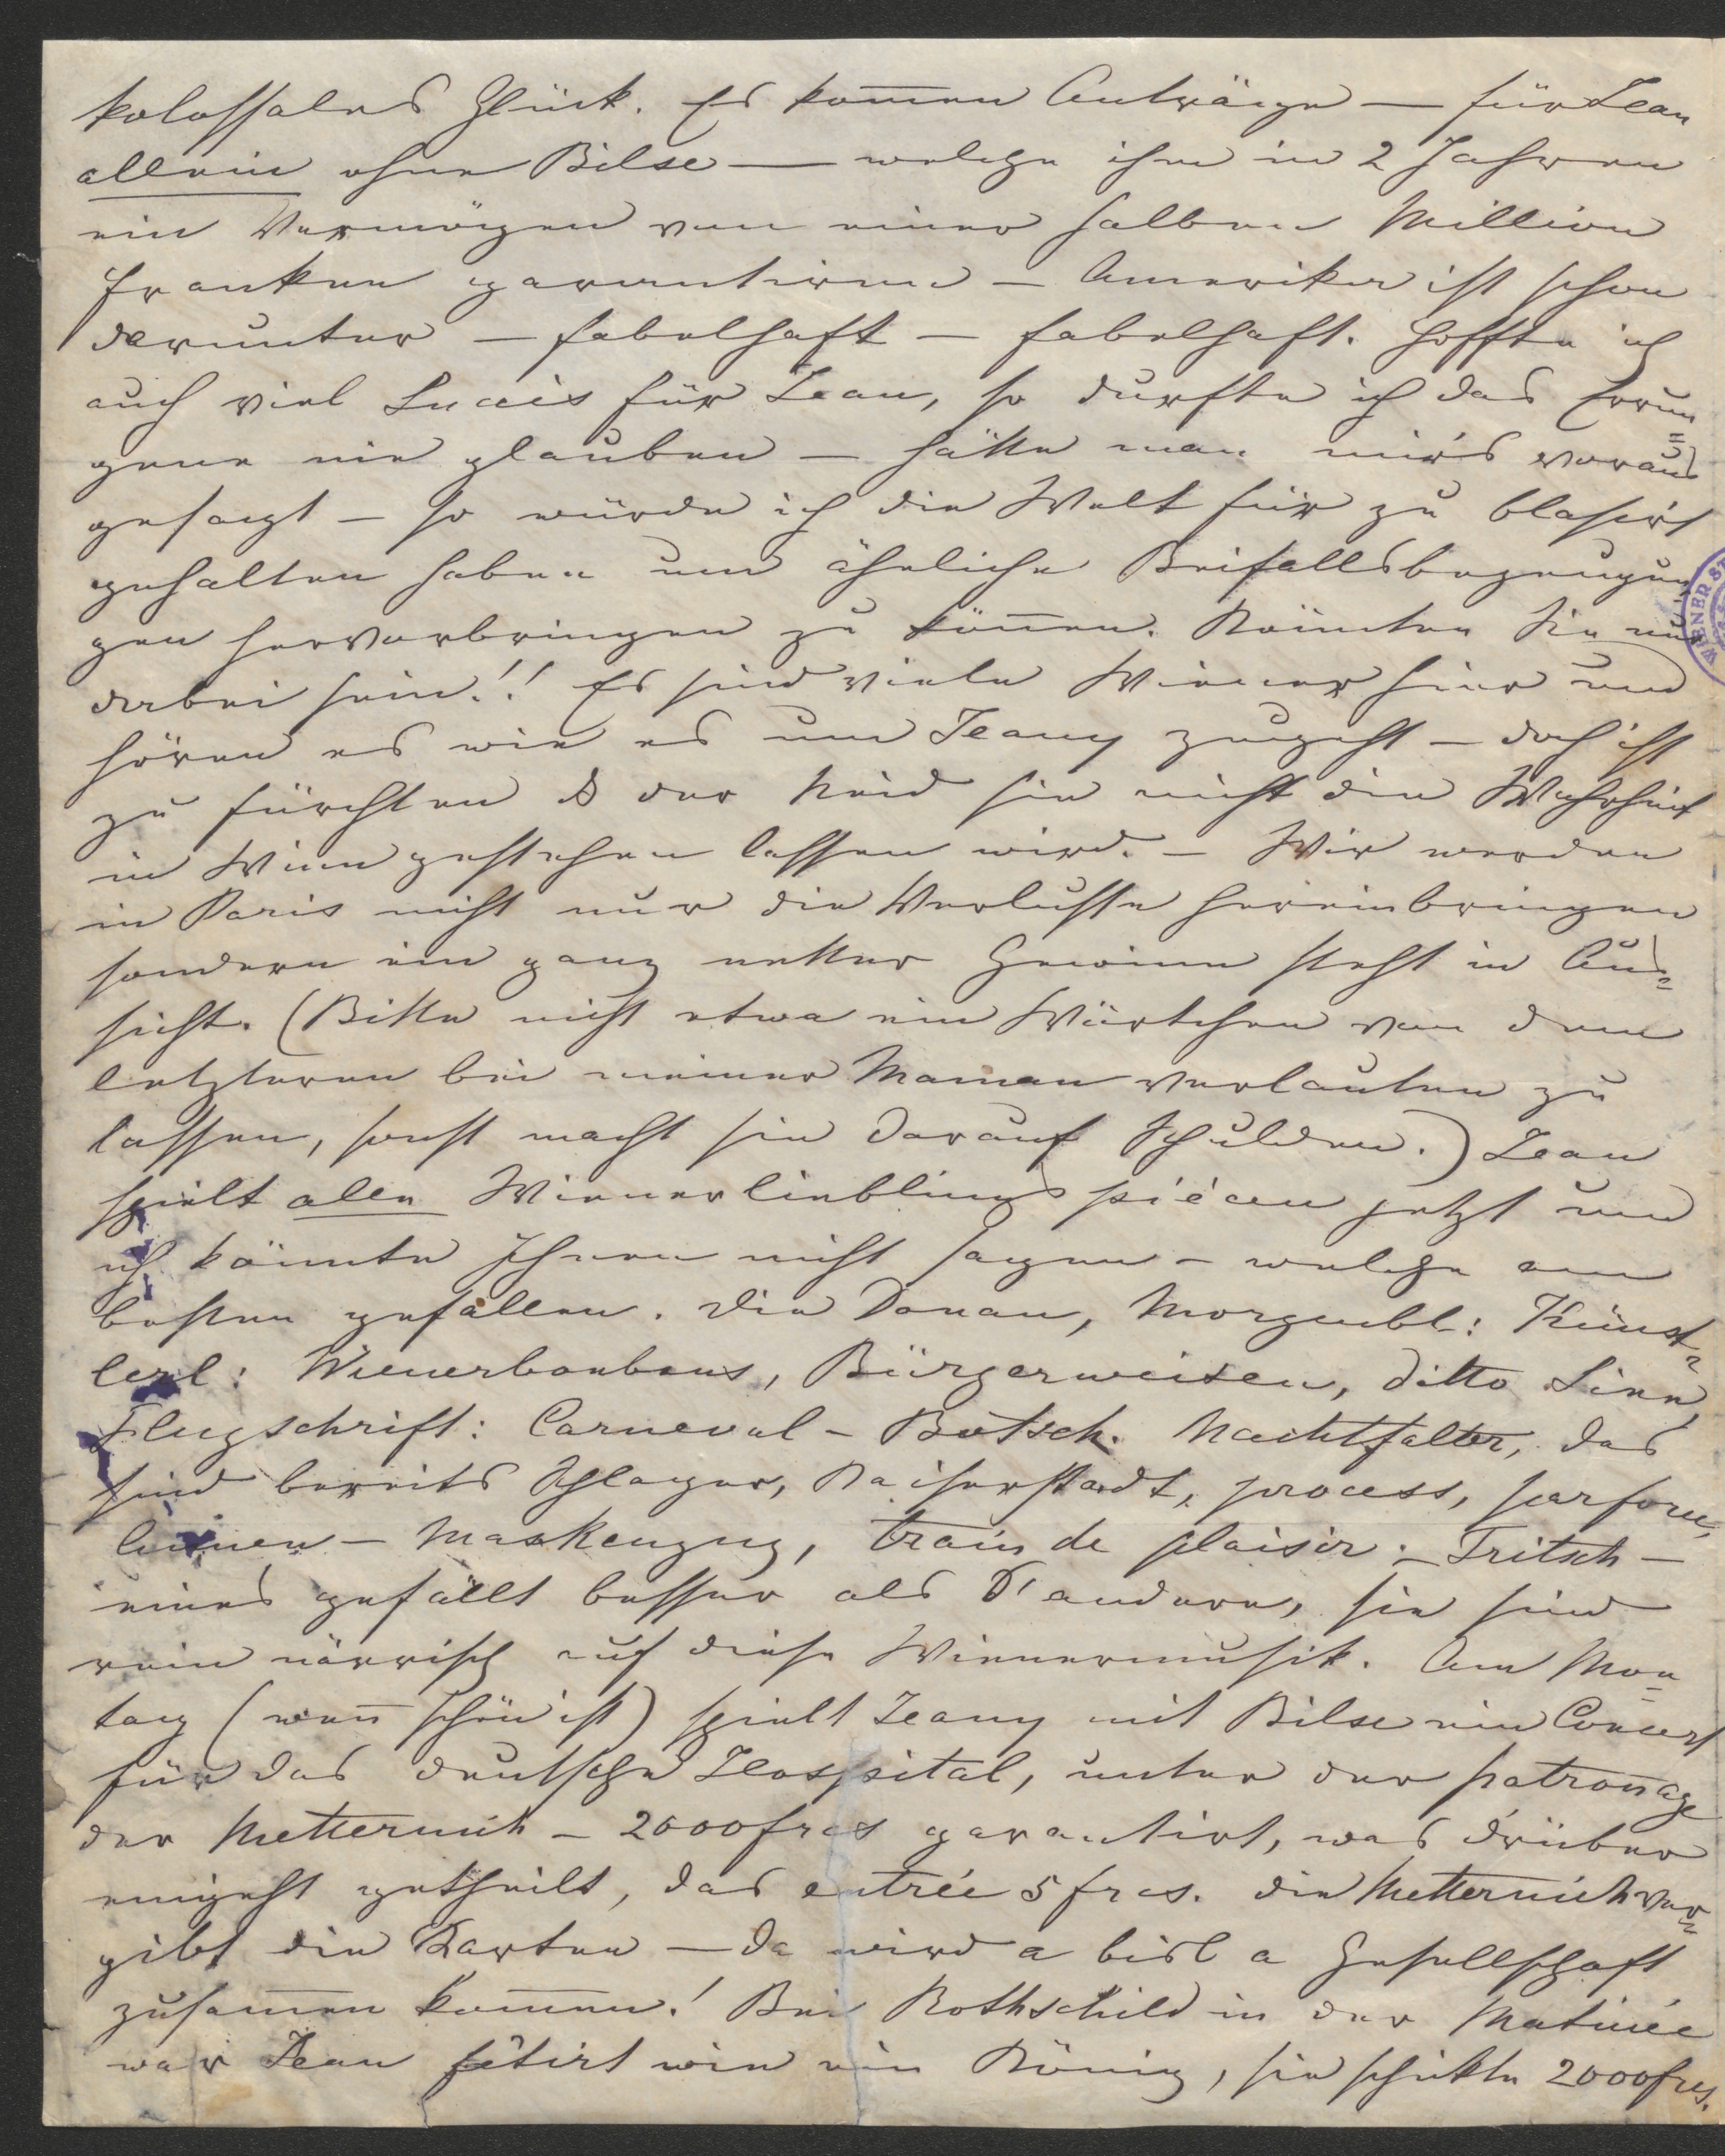 kolossales Glück. Es kom̄en Anträge — für Jean
allein ohne Bilse — welche ihm in 2 Jahren
ein Vermögen von einer halben Million
Franken garantiren — Amerika ist schon
darunter — fabelhaft — fabelhaft. Hoffte ich
auch viel Succès für Jean, so durfte ich das Errun=
gene nie glauben — hätte man mir's voraus
gesagt — so würde ich die Welt für zu blasirt
gehalten haben um ähnliche Beifallsbezeugun
gen hervorbringen zu kön̄en. Könnten Sie nur
dabei sein!! Es sind viele Wiener hier und
hören es wie es um Jeany zugeht — doch ist
zu fürchten ß der Neid sie nicht die Wahrheit
in Wien gestehen lassen wird. — Wir werden
in Paris nicht nur die Verluste hereinbringen
sondern ein ganz netter Gewinn steht in Aus=
sicht. (Bitte nicht etwa ein Wörtchen von dem
letzteren bei meiner Maman verlauten zu
lassen, sonst macht sie darauf Schulden.) Jean
spielt alle Wienerlieblingspiécen jetzt und
ich könnte Ihnen nicht sagen — welche am
besten gefallen. Die Donau, Morgenbl: Künst=
lerl: Wienerbonbons, Bürgerweisen, ditto Sinn
Flugschrift: Carneval — Botsch. Nachtfalter, das
sind bereits Schlager, Kaiserstadt, process, parforce,
Maskenzug, train de plaisir. — Tritsch —
eines gefällt besser als d'andere, sie sind
rein närrisch auf diese Wienermusik. Am Mon=
tag (wen̄ schön ist) spielt Jeany mit Bilse ein Concert
für das deutsche Hospital, unter der patronage
der Metternich — 2000 frcs garantirt, was drüber
eingeht getheilt, das entrée 5 frcs. die Metternich ver=
gibt die Karten — da wird a bisl a Gesellschaft
zusam̄en kom̄en! Bei Rothschild in der Matinée
war Jean fêtirt wie ein König, sie schikte 2000 frcs.
WIENER ST